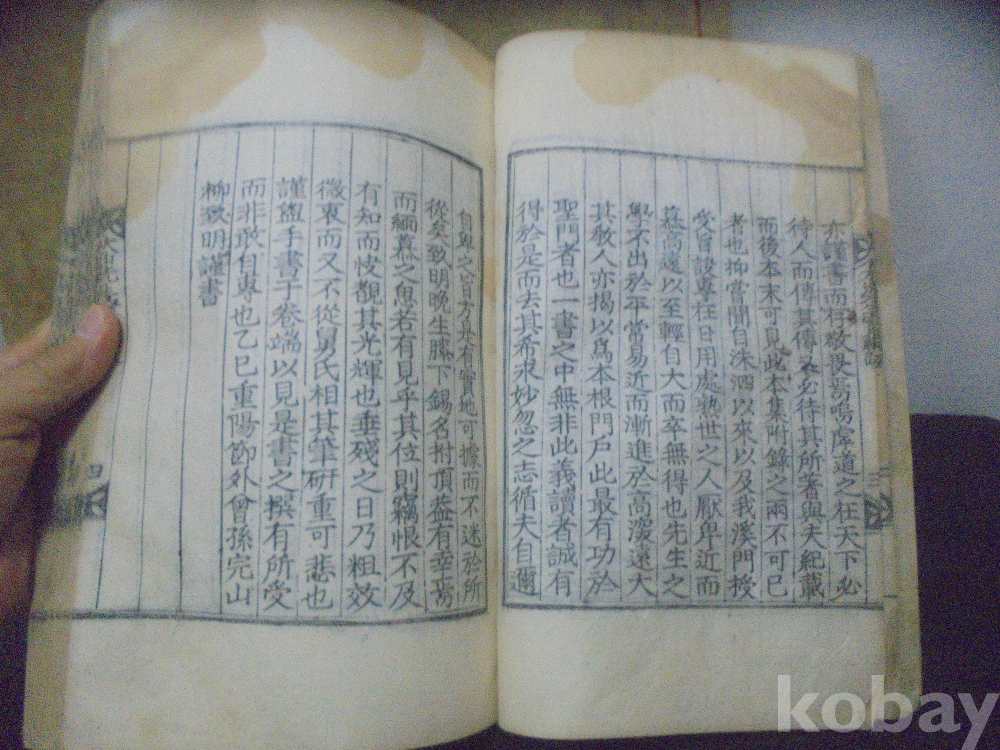 亦謹書而極敬畏焉嗚虖道之在天下必
待人而傳其傳又必待其所著與夫紀載
而後本末可見此本集附錄之兩不可已
者也抑嘗聞自洙泗以來以及我溪門授
受旨訣專在日用處熟世之人厭卑近而
慕高遠以至輕自大而卒無得也先生之
學不出於平常易近而漸進於高深遠大
其敎人亦揭以爲本根門戶此最有功於
聖門者也一書之中無非此義讀者誠有
得於是而去其希求妙忽之志循夫自邇
自卑之旨方是有實地可據而不迷於所
從矣致明晚生膝下錫名拊頂蓋有幸焉
而緬慕之思若有見乎其位則竊恨不及
有知而悛覩其光輝也垂殘之日乃粗效
微衷而又不從舅氏相其筆硏重可悲也
謹盥手書于卷端以見是書之撰有所受
而非敢自專也乙巳重陽節外曾孫完山
柳致明謹書
四
kobay